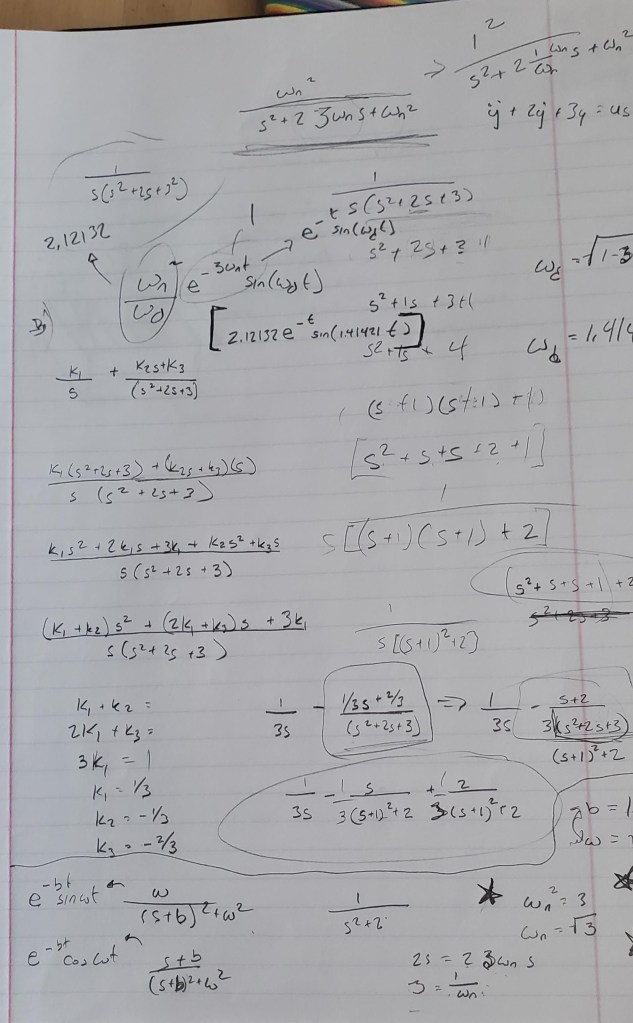 ωn² / (s² + 2 3ωn s + ωn²)
⇒ 1² / (s² + 2 (1/ωn) ωn s + ωn²)
ÿ + 2ẏ + 3y = us
1 / (s(s² + 2s + 3²))
1 / (s(s² + 2s + 3))
2.12132
ωn² / ωd e^-3ωnt sin(ωd t)
1
e^-t sin(ωd t)
s² + 2s + 3
s² + 1s + 3+1
[2.12132 e^-t sin(1.41421 t)]
s² + 1s + 4
ωd = √1-3
ωd = 1.414
B)
k1/s + (k2s + k3) / (s² + 2s + 3)
(s+1)(s+1) + 1)
[s² + s + s + 2 + 1]
(k1(s² + 2s + 3) + (k2s + k3)(s)) / (s (s² + 2s + 3))
1 / (s[(s+1)(s+1) + 2])
(k1s² + 2k1s + 3k1 + k2s² + k3s) / (s(s² + 2s + 3))
(s² + s + s + 1) + 2
s² + 2s + 3
((k1 + k2)s² + (2k1 + k3)s + 3k1) / (s(s² + 2s + 3))
1 / (s[(s+1)² + 2])
k1 + k2 =
2k1 + k3 =
3k1 = 1
k1 = 1/3
k2 = -1/3
k3 = -2/3
1/3s - (1/3s + 2/3) / (s² + 2s + 3) ⇒ 1/3s - (s+2) / (3(s² + 2s + 3))
(s+1)² + 2
1/3s - 1/3 s/((s+1)² + 2) + 1/3 2/((s+1)² + 2)
b = 1
ω =
e^-bt sin ωt ← ω / ((s+b)² + ω²)
1 / (s² + 2)
★ ωn² = 3
ωn = √3
e^-bt cos ωt ← (s+b) / ((s+b)² + ω²)
2s = 2 3ωn s
3 = 1/ωn